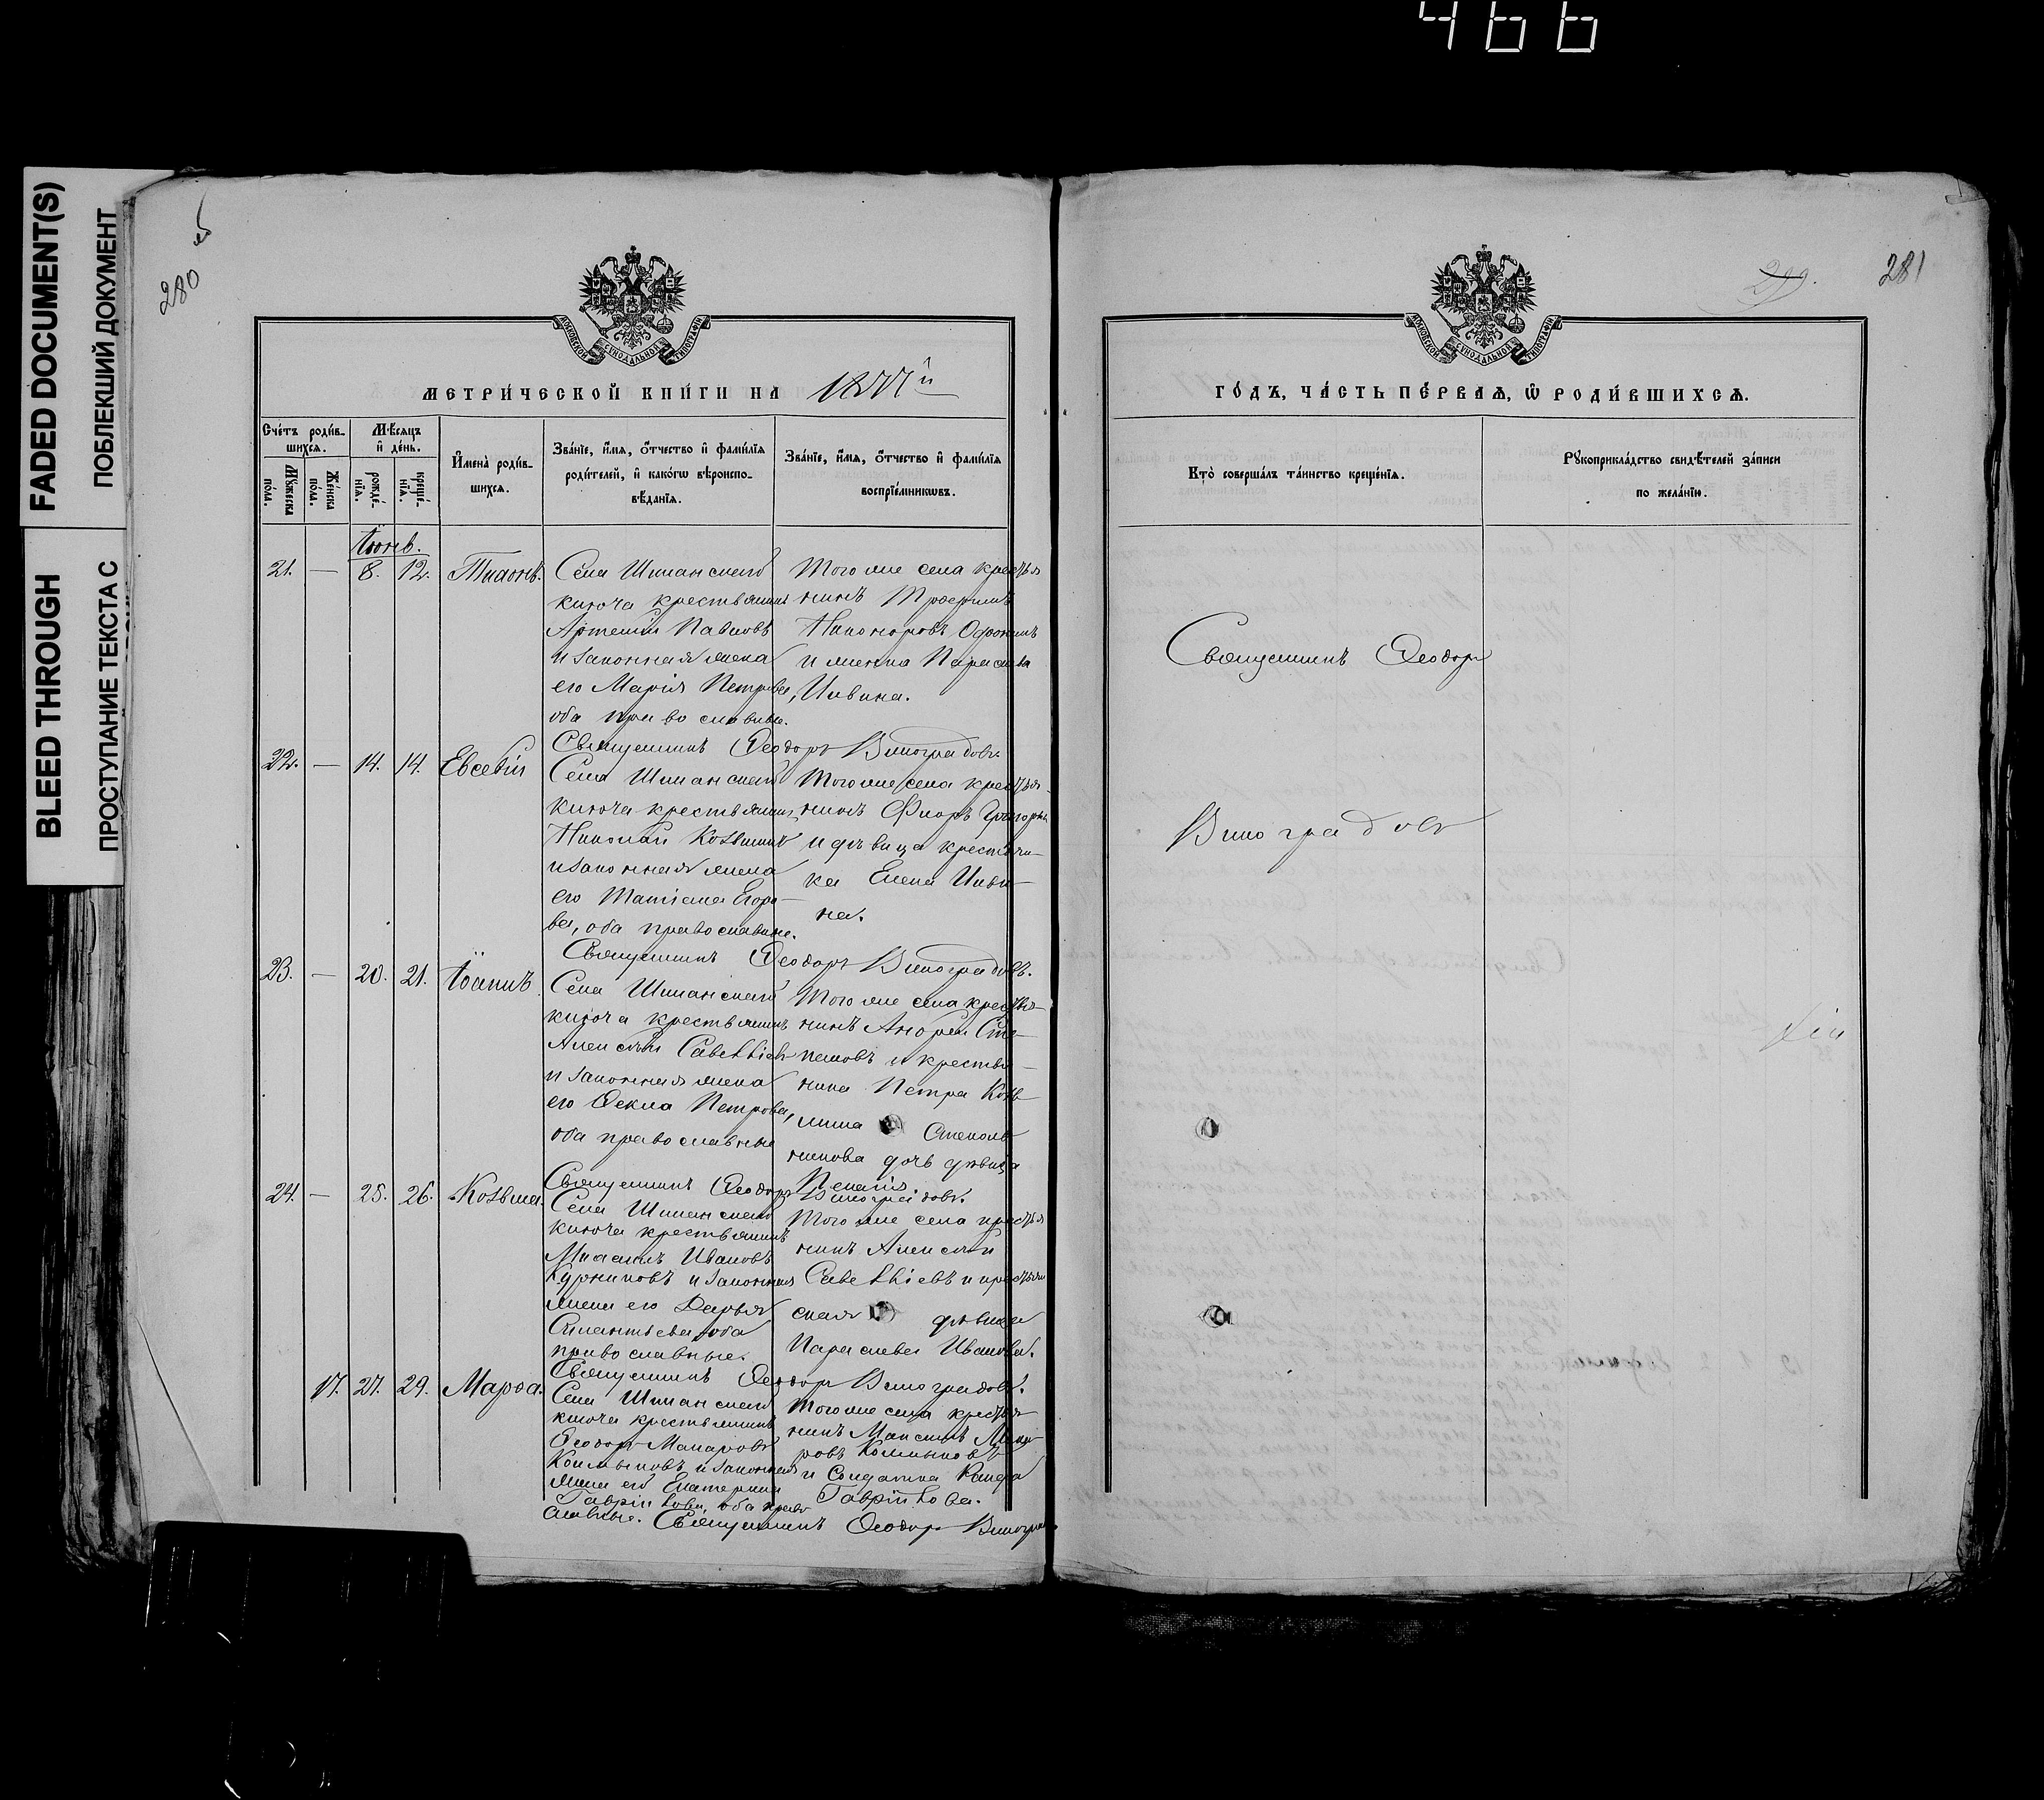 466
FADED DOCUMENT(S)
ПОБЛЕКШИЙ ДОКУМЕНТ
BLEED THROUGH
ПРОСТУПАНИЕ ТЕКСТА С
280 об
МОСКОВСКОЙ СѴНОДАЛЬНОЙ ТИПОГРАФІИ
МЕТРИ́ЧЕСКОЙ КНИ́ГИ НА 1877й
Сче́тъ роди́в-
шихся.
Мꙋ́жеска
по́ла.
Же́нска
по́ла.
Мѣ́сяцъ
и҆ де́нь.
рожде́-
нїѧ.
креще́-
нїѧ.
И҆мена̀ роди́в-
шихсѧ.
Зва́нїе, и҆́мѧ, ѻ҆́тчество и҆ фами́лїѧ
роди́телей, и҆ како́гѡ вѣ́роиспо-
вѣ́данїѧ.
Зва́нїе, и҆́мѧ, ѻ҆́тчество и҆ фами́лїѧ
воспрїе́мникѡвъ.
Іюнь.
21. — 8. 12. Тихонъ.
Села Шиланскаго
ключа крестьянинъ
Артемій Павловъ
и законная жена
его Марія Петрова,
оба православные.
Того же села крестья
нинъ Трофимъ
Никоноровъ
и женка Параскева
Священникъ Ѳеодоръ Виноградовъ.
22. — 14. 14. Евсевій
Села Шиланскаго
ключа крестьянинъ
Николай Козьминъ
и законная жена
его Татіана Егоро-
ва, оба православные.
Того же села крестья-
нинъ Флоръ Григорьевъ
и дѣвица крестьян-
ка Елена
на.
Священникъ Ѳеодоръ Виноградовъ.
23. — 20. 21. Іоаннъ
Села Шиланскаго
ключа крестьянинъ
Алексѣй Савельевъ
и законная жена
его Ѳекла Петрова,
оба православные
Того же села крестья-
нинъ Андрей Сте-
пановъ и крестья-
нина Петра Козь-
мина Стеколь
никова дочь дѣвица
Пелагія.
Священникъ Ѳеодоръ Виноградовъ.
24. — 25. 26. Козьма.
Села Шиланскаго
ключа крестьянинъ
Михаилъ Ивановъ
и законная
жена его Дарья
оба
православные.
Того же села крестья
нинъ Алексѣй
Савельевъ и крестьян
ская дѣвица
Параскева Иванова.
Священникъ Ѳеодоръ Виноградовъ.
17. 27. 29. Марѳа.
Села Шиланскаго
ключа крестьянинъ
Ѳеодоръ Макаровъ
и законная
жена его Екатерина
Гаврилова, оба право
славные.
Того же села крестья
нинъ Максимъ Мака
ровъ
и Солдатка
Гаврилова.
Священникъ Ѳеодоръ
281
МОСКОВСКОЙ СѴНОДАЛЬНОЙ ТИПОГРАФІИ
ГО́ДЪ, ЧА́СТЬ ПЕ́РВАѦ, Ѽ РОДИ́ВШИХСѦ.
Кто̀ соверша́лъ та́инство креще́нїѧ.
Рꙋкоприкла́дство свидѣ́телей за́писи
по жела́нїю.
Священникъ Ѳеодоръ
Виноградовъ